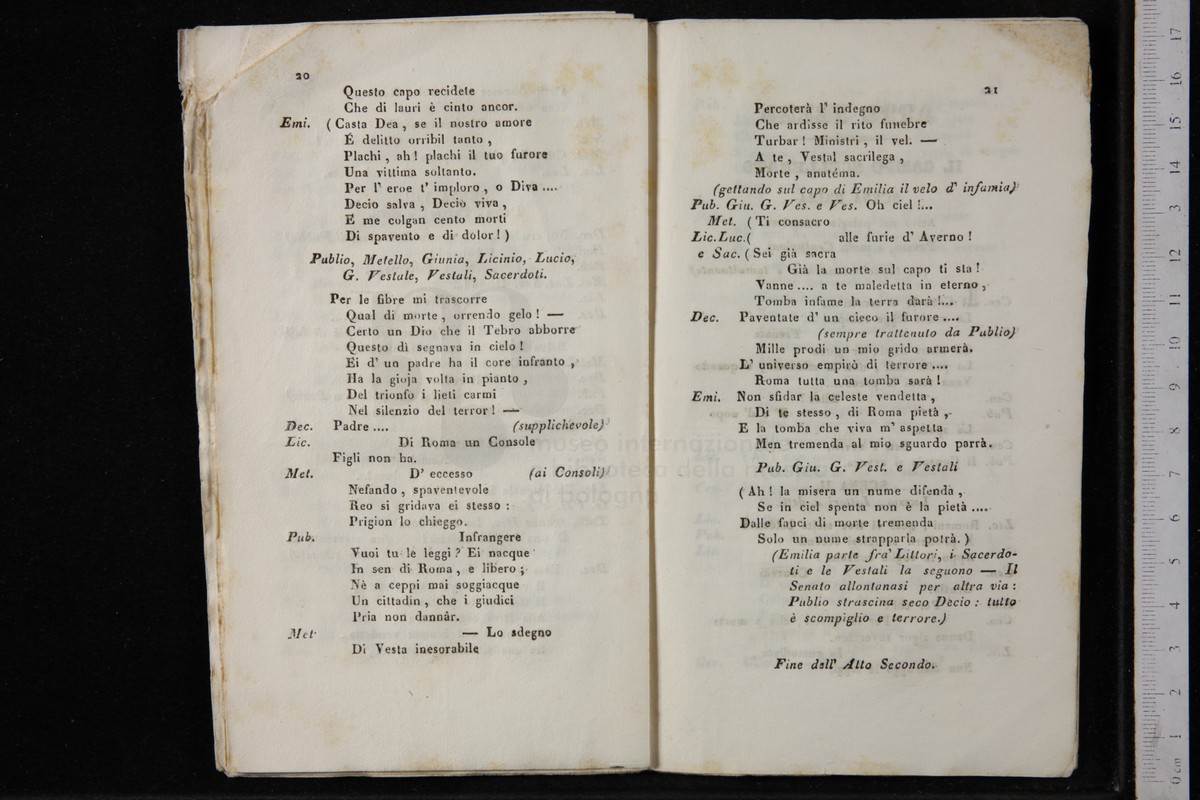 20
Questo capo recidete
Che di lauri è cinto ancor.
Emi. ( Casta Dea , se il nostro amore
É delitto orribil tanto ,
Plachi , ah ! plachi il tuo furore
Una vittima soltanto.
Per l' eroe t' imploro , o Diva ....
Decio salva , Decio viva ,
E me colgan cento morti
Di spavento e di dolor ! )
Publio, Metello, Giunia, Licinio, Lucio,
G. Vestale, Vestali, Sacerdoti.
Per le fibre mi trascorre
Qual di morte , orrendo gelo ! —
Certo un Dio che il Tebro abborre
Questo dì segnava in cielo !
Ei d' un padre ha il core infranto ,
Ha la gioja volta in pianto ,
Del trionfo i lieti carmi
Nel silenzio del terror ! —
Dec. Padre .... (supplichevole)
Lic. Di Roma un Console
Figli non ha.
Met. D' eccesso (ai Consoli)
Nefando , spaventevole
Reo si gridava ei stesso :
Prigion lo chieggo.
Pub. Infrangere
Vuoi tu le leggi ? Ei nacque
In sen di Roma , e libero ;
Nè a ceppi mai soggiacque
Un cittadin , che i giudici
Pria non dannàr.
Met. — Lo sdegno
Di Vesta inesorabile
21
Percoterà l' indegno
Che ardisse il rito funebre
Turbar ! Ministri , il vel. —
A te , Vestal sacrilega ,
Morte , anatéma.
(gettando sul capo di Emilia il velo d' infamia)
Pub. Giu. G. Ves. e Ves. Oh ciel !...
Met. ( Ti consacro
Lic. Luc. ( alle furie d' Averno !
e Sac. ( Sei già sacra
Già la morte sul capo ti sta !
Vanne .... a te maledetta in eterno ,
Tomba infame la terra darà !...
Dec. Paventate d' un cieco il furore ....
(sempre trattenuto da Publio)
Mille prodi un mio grido armerà.
L' universo empirò di terrore ....
Roma tutta una tomba sarà !
Emi. Non sfidar la celeste vendetta ,
Di te stesso , di Roma pietà ,
E la tomba che viva m' aspetta
Men tremenda al mio sguardo parrà.
Pub. Giu. G. Vest. e Vestali
( Ah ! la misera un nume difenda ,
Se in ciel spenta non è la pietà ....
Dalle fauci di morte tremenda
Solo un nume strapparla potrà. )
(Emilia parte fra' Littori, i Sacerdo-
ti e le Vestali la seguono — Il
Senato allontanasi per altra via :
Publio strascina seco Decio : tutto
è scompiglio e terrore.)
Fine dell' Atto Secondo.
museo internazionale
e biblioteca della musica
di bologna
0 cm 1 2 3 4 5 6 7 8 9 10 11 12 13 14 15 16 17